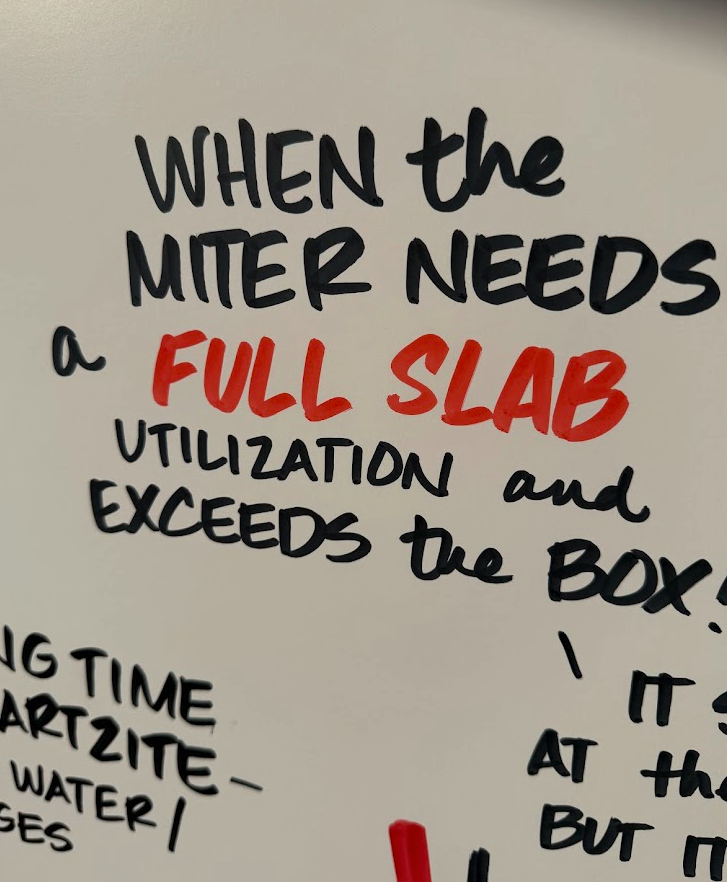 WHEN the
MITER NEEDS
a FULL SLAB
UTILIZATION and
EXCEEDS the BOX!
NG TIME
ARTZITE-
WATER/
GES
IT
AT the
BUT IT